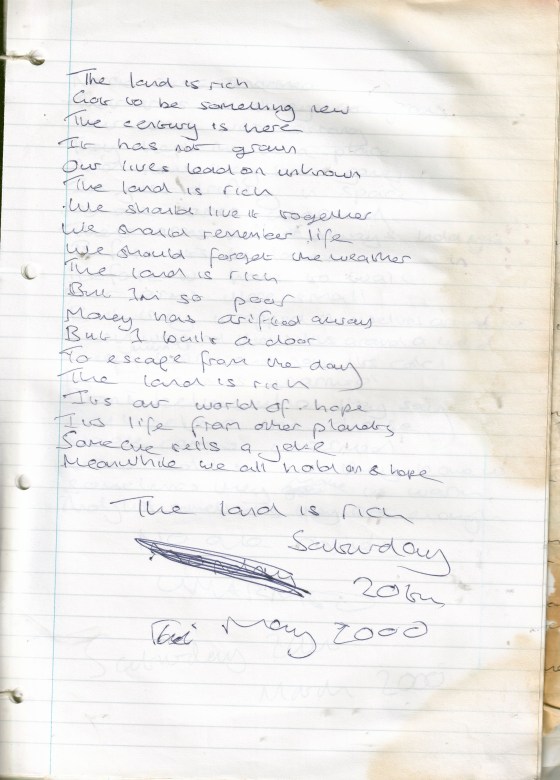 The land is rich
Got to be something new
The century is here
It has not grown
Our lives lead on unknown
The land is rich
We should live it together
We should remember life
We should forget the weather
The land is rich
But Im so poor
Money has drifted away
But I built a door
To escape from the day
The land is rich
Its our world of hope
Its life from other planets
Someone tells a joke
Meanwhile we all hold on & hope
The land is rich
Saturday
20th
May 2000